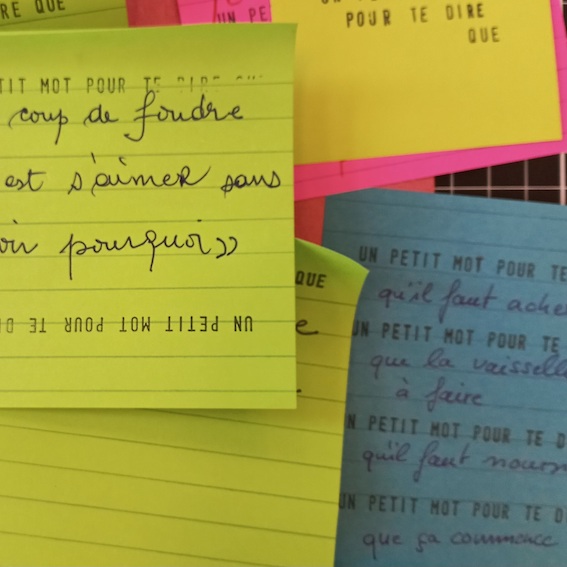 RE QUE
UN PE
POUR TE DIRE
QUE
TIT MOT POUR TE DIRE QUE
coup de foudre
est s'aimer sans
oir pourquoi »
UN PETIT MOT POUR TE D
QUE
e
UN PETIT MOT POUR TE
qu'il faut ache
UN PETIT MOT POUR TE
que la vaissell
à faire
N PETIT MOT POUR TE D
qu'il faut nourr
UN PETIT MOT POUR TE D
que ça commence